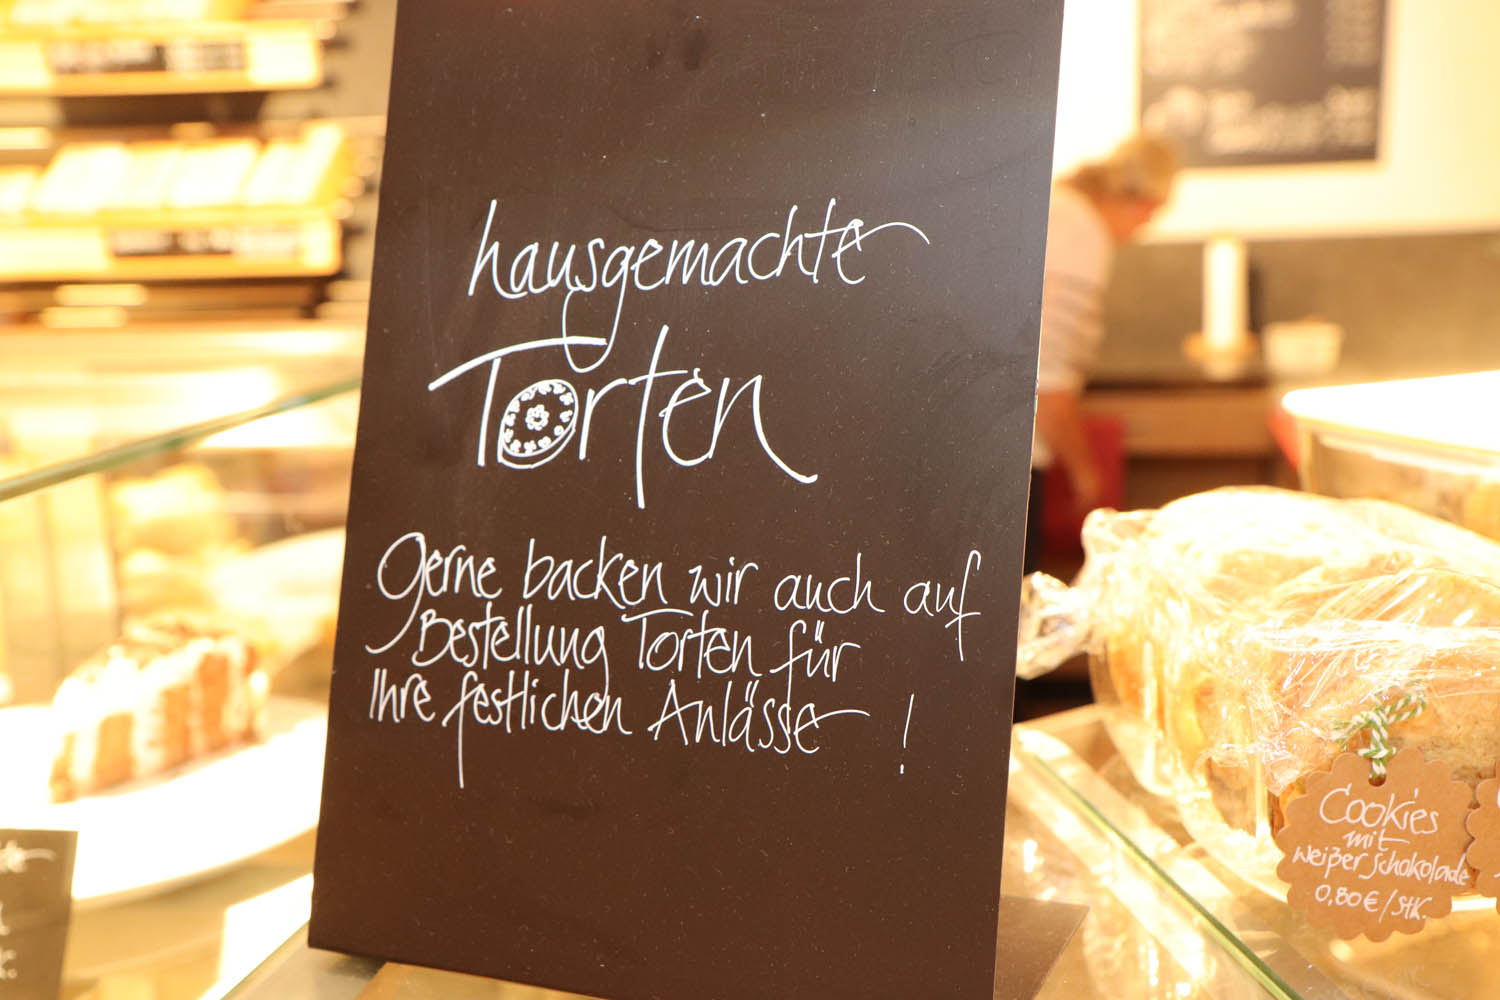 hausgemachte
Torten
Gerne backen wir auch auf
Bestellung Torten für
Ihre festlichen Anlässe !
Cookies
mit
weißer Schokolade
0,80€/Stk.